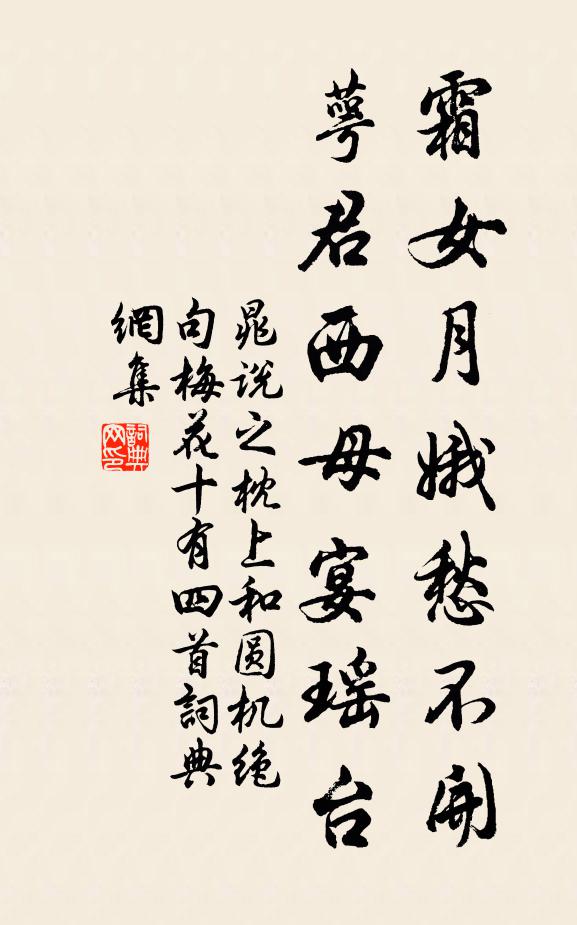 霜女月娥愁不开
萼君西母宴瑶台
晁说之枕上和圆机绝
句梅花十有四首詞典
網集
詞典
网印